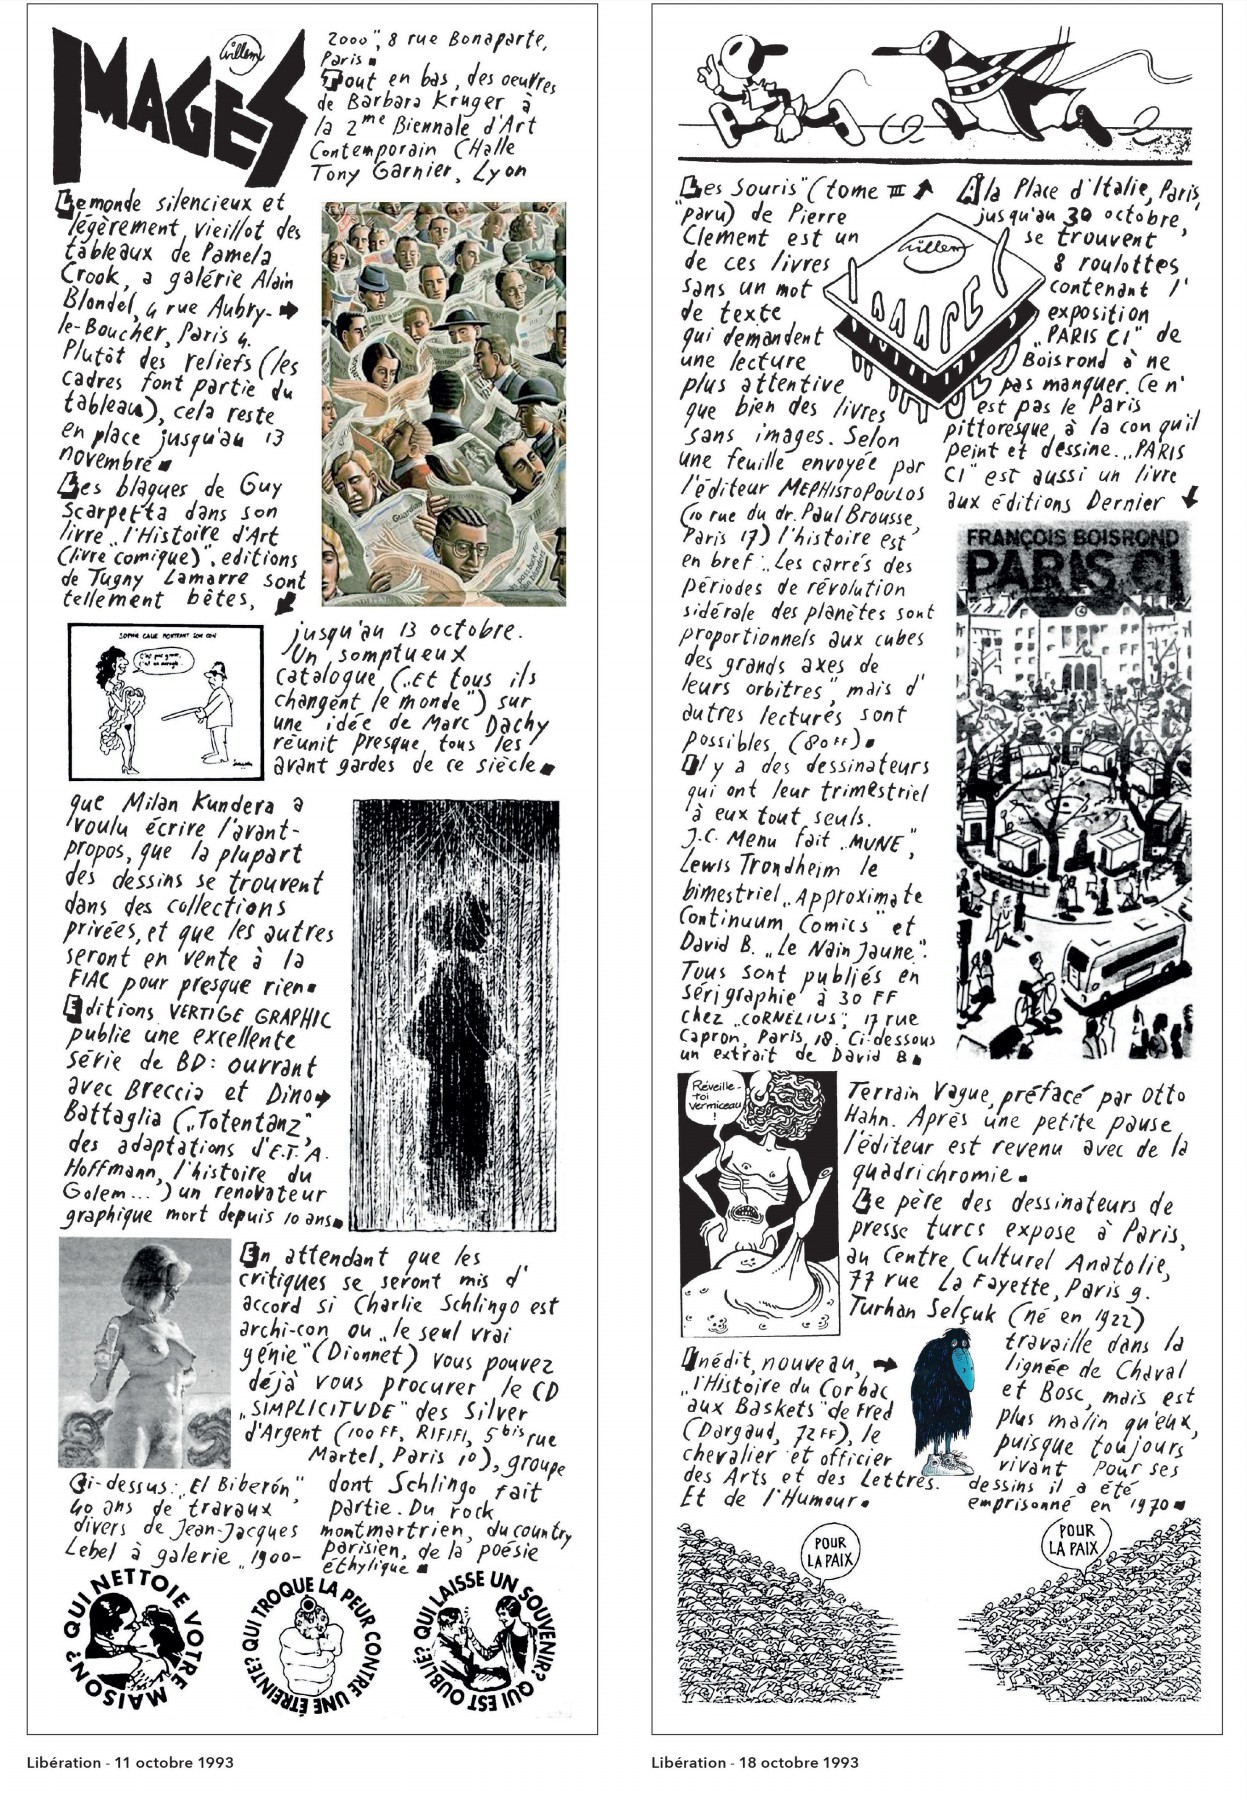 IMAGES
Willem
2000", 8 rue Bonaparte,
Paris
Tout en bas, des oeuvres
de Barbara Kruger à
la 2me Biennale d'Art
Contemporain (Halle
Tony Garnier, Lyon
Le monde silencieux et
légèrement vieillot des
tableaux de Pamela
Crook, a galérie Alain
Blondel, 4 rue Aubry-
le-Boucher, Paris 4.
Plutôt des reliefs (les
cadres font partie du
tableau), cela reste
en place jusqu'au 13
novembre
Les blagues de Guy
Scarpetta dans son
livre „l'Histoire d'Art
(livre comique)", editions
de Tugny Lamarre sont
tellement bêtes,
SOPHIE CALLE MONTRANT SON CON
jusqu'au 13 octobre.
Un somptueux
catalogue („Et tous ils
changent le monde") sur
une idée de Marc Dachy
réunit presque tous les
avant gardes de ce siècle
que Milan Kundera a
voulu écrire l'avant-
propos, que la plupart
des dessins se trouvent
dans des collections
privées, et que les autres
seront en vente à la
FIAC pour presque rien
Editions VERTIGE GRAPHIC
publie une excellente
série de BD: ouvrant
avec Breccia et Dino
Battaglia („Totentanz",
des adaptations d'E.T.A.
Hoffmann, l'histoire du
Golem...") un renovateur
graphique mort depuis 10 ans
En attendant que les
critiques se seront mis d'
accord si Charlie Schlingo est
archi-con ou „le seul vrai
génie" (Dionnet) vous pouvez
déjà vous procurer le CD
„SIMPLICITUDE" des Silver
d'Argent (100 FF, RIFIFI, 5bis rue
Martel, Paris 10), groupe
dont Schlingo fait
partie. Du rock
montmartrien, du country
parisien, de la poésie
éthylique
Ci-dessus: „El Biberón",
40 ans de travaux
divers de Jean-Jacques
Lebel à galerie „1900-
QUI NETTOIE VOTRE MAISON?
QUI TROQUE LA PEUR CONTRE UNE ÉTREINTE?
QUI LAISSE UN SOUVENIR? QUI EST OUBLIÉ?
Libération - 11 octobre 1993
„Les Souris" (tome III
paru) de Pierre
Clement est un
de ces livres
sans un mot
de texte
qui demandent
une lecture
plus attentive
que bien des livres
sans images. Selon
une feuille envoyée par
l'éditeur MEPHISTOPOULOS
(10 rue du dr. Paul Brousse,
Paris 17) l'histoire est
en bref „Les carrés des
périodes de révolution
sidérale des planètes sont
proportionnels aux cubes
des grands axes de
leurs orbitres" mais d'
autres lectures sont
possibles (80 FF).
Il y a des dessinateurs
qui ont leur trimestriel
à eux tout seuls.
J.C. Menu fait „MUNE",
Lewis Trondheim le
bimestriel „Approximate
Continuum Comics" et
David B. „Le Nain Jaune".
Tous sont publiés en
sérigraphie à 30 FF
chez „CORNÉLIUS", 17 rue
Capron, Paris, 18. Ci-dessous
un extrait de David B
Willem
IMAGES
A la Place d'Italie, Paris,
jusqu'au 30 octobre,
se trouvent
8 roulottes
contenant l'
exposition
„PARIS CI" de
Boisrond à ne
pas manquer. Ce n'
est pas le Paris
pittoresque, à la con qu'il
peint et dessine. „PARIS
CI" est aussi un livre
aux éditions Dernier
FRANÇOIS BOISROND
PARIS CI
Réveille-
toi
vermiceau
!
Terrain Vague, préfacé par Otto
Hahn. Après une petite pause
l'éditeur est revenu avec de la
quadrichromie
Le père des dessinateurs de
presse turcs expose à Paris,
au Centre Culturel Anatolie,
77 rue La Fayette, Paris 9.
Turhan Selçuk (né en 1922)
travaille dans la
lignée de Chaval
et Bosc, mais est
plus malin qu'eux,
puisque toujours
vivant Pour ses
dessins il a été
emprisonné en 1970
Inédit, nouveau,
„l'Histoire du Corbac
aux Baskets" de Fred
(Dargaud, 72 FF), le
chevalier et officier
des Arts et des Lettres.
Et de l'Humour.
POUR
LA PAIX
POUR
LA PAIX
Libération - 18 octobre 1993